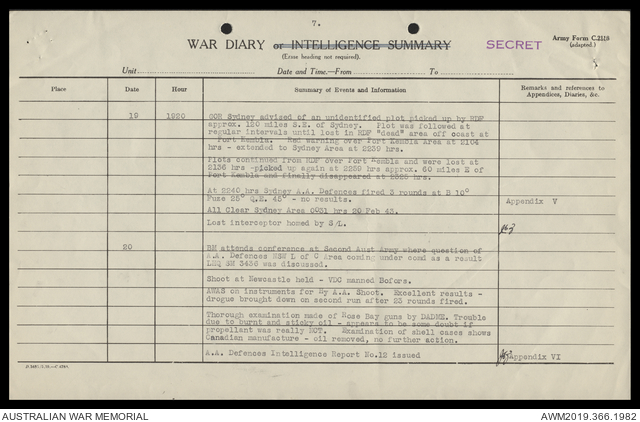 7.
WAR DIARY or INTELLIGENCE SUMMARY
SECRET
Army Form C.2118
(adapted.)
(Erase heading not required).
Unit
Date and Time.—From To
Place Date Hour Summary of Events and Information Remarks and references to
Appendices, Diaries, &c.
19 1920 GOR Sydney advised of an unidentified plot picked up by RDF
approx. 120 miles S.E. of Sydney. Plot was followed at
regular intervals until lost in RDF "dead" area off coast at
Port Kembla. Red warning over Port Kembla Area at 2104
hrs - extended to Sydney Area at 2239 hrs.
Plots continued from RDF over Port Kembla and were lost at
2136 hrs -picked up again at 2259 hrs approx. 60 miles E of
Port Kembla and finally disappeared at hrs.
At 2240 hrs Sydney A.A. Defences fired 3 rounds at B 10°
Fuze 25° Q.E. 45° - no results. Appendix V
All Clear Sydney Area 0031 hrs 20 Feb 43.
Lost interceptor homed by S/L.
20 BM attends conference at Second Aust Army where question of
A.A. Defences NSW L of C Area coming under comd as a result
LHQ SM 3436 was discussed.
Shoot at Newcastle held - VDC manned Bofors.
AWAS on instruments for Hy A.A. Shoot. Excellent results -
drogue brought down on second run after 23 rounds fired.
Thorough examination made of Rose Bay guns by DADME. Trouble
due to burnt and sticky oil - appears to be some doubt if
propellant was really NCT. Examination of shell cases shows
Canadian manufacture - oil removed, no further action.
A.A. Defences Intelligence Report No.12 issued Appendix VI
AUSTRALIAN WAR MEMORIAL
AWM2019.366.1982